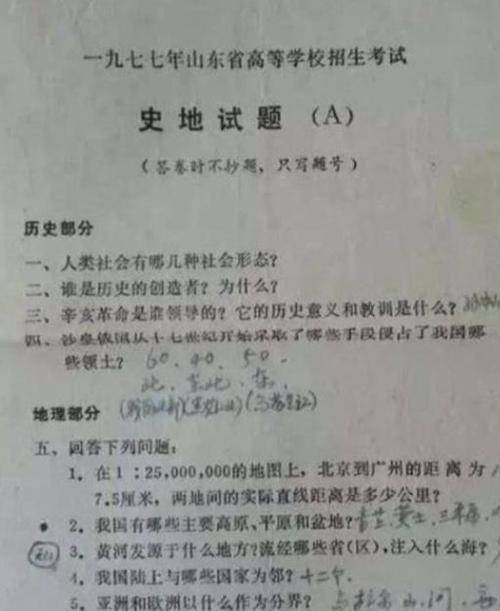 一九七七年山东省高等学校招生考试
史地试题（A）
（答卷时不抄题，只写题号）
历史部分
一、人类社会有哪几种社会形态？
二、谁是历史的创造者？为什么？
三、辛亥革命是谁领导的？它的历史意义和教训是什么？
四、沙皇俄国从十七世纪开始采取了哪些手段侵占了我国哪
些领土？ 60.40.50.
北．东北．东．
地理部分
五、回答下列问题：
1．在1：25,000,000的地图上，北京到广州的距离为
7.5厘米，两地间的实际直线距离是多少公里？
2．我国有哪些主要高原、平原和盆地？青藏、黄土、
3．黄河发源于什么地方？流经哪些省（区），注入什么海？
4．我国陆上与哪些国家为邻？十二个．
5．亚洲和欧洲以什么作为分界？